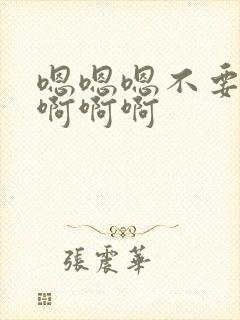 嗯嗯嗯不要
啊啊啊
張震華